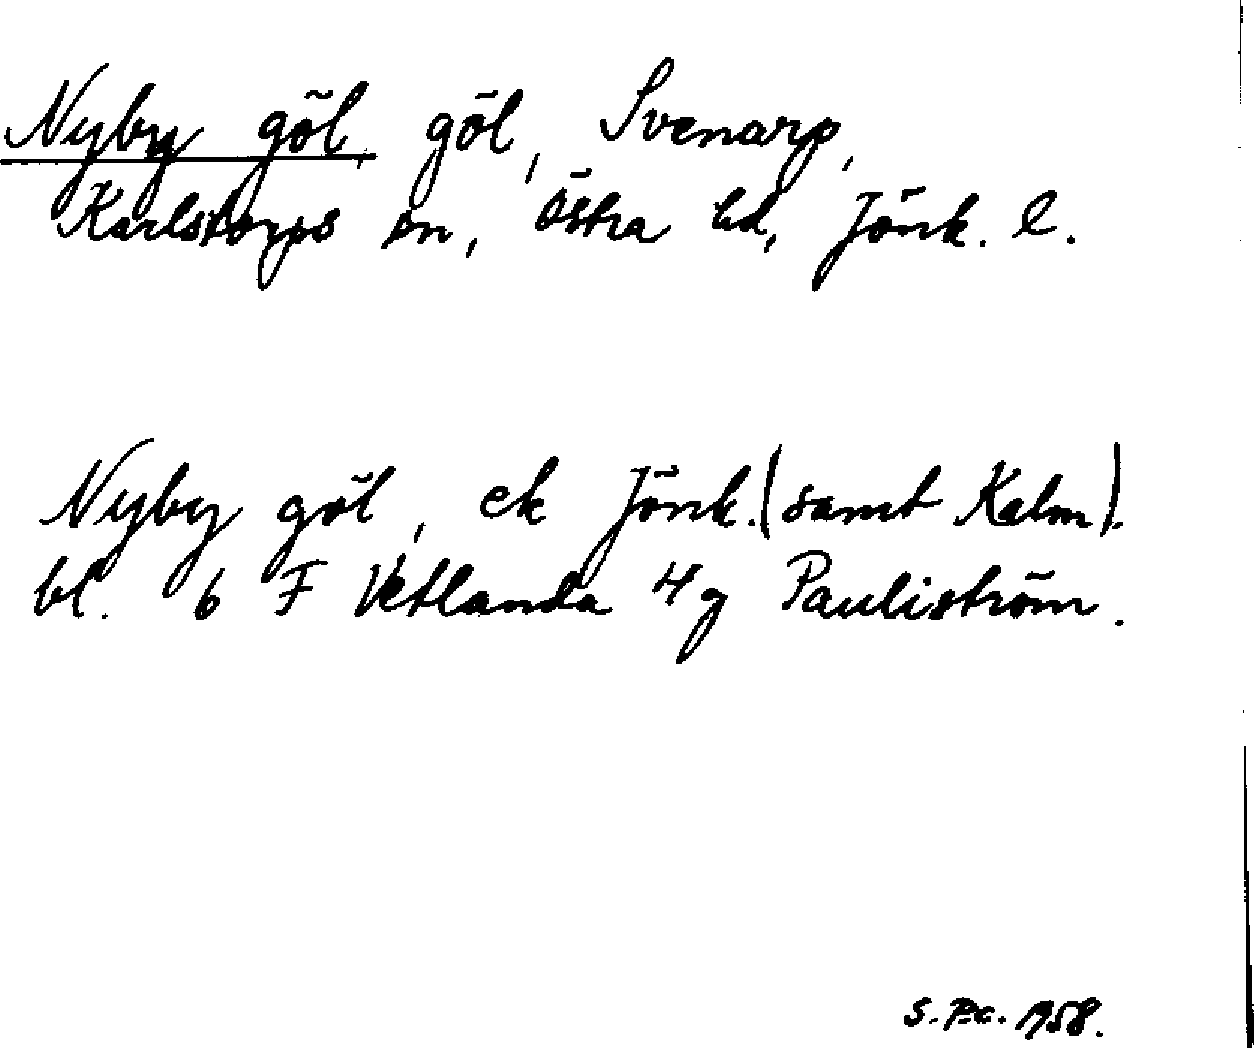 Nyby göl, göl, Svenarp,
Karlstorps sn, Östra hd, Jönk. l.
Nyby göl, ek Jönk. (samt Kalm).
bl. 6 F Vetlanda 4g Pauliström.
S. P:c. 1958.